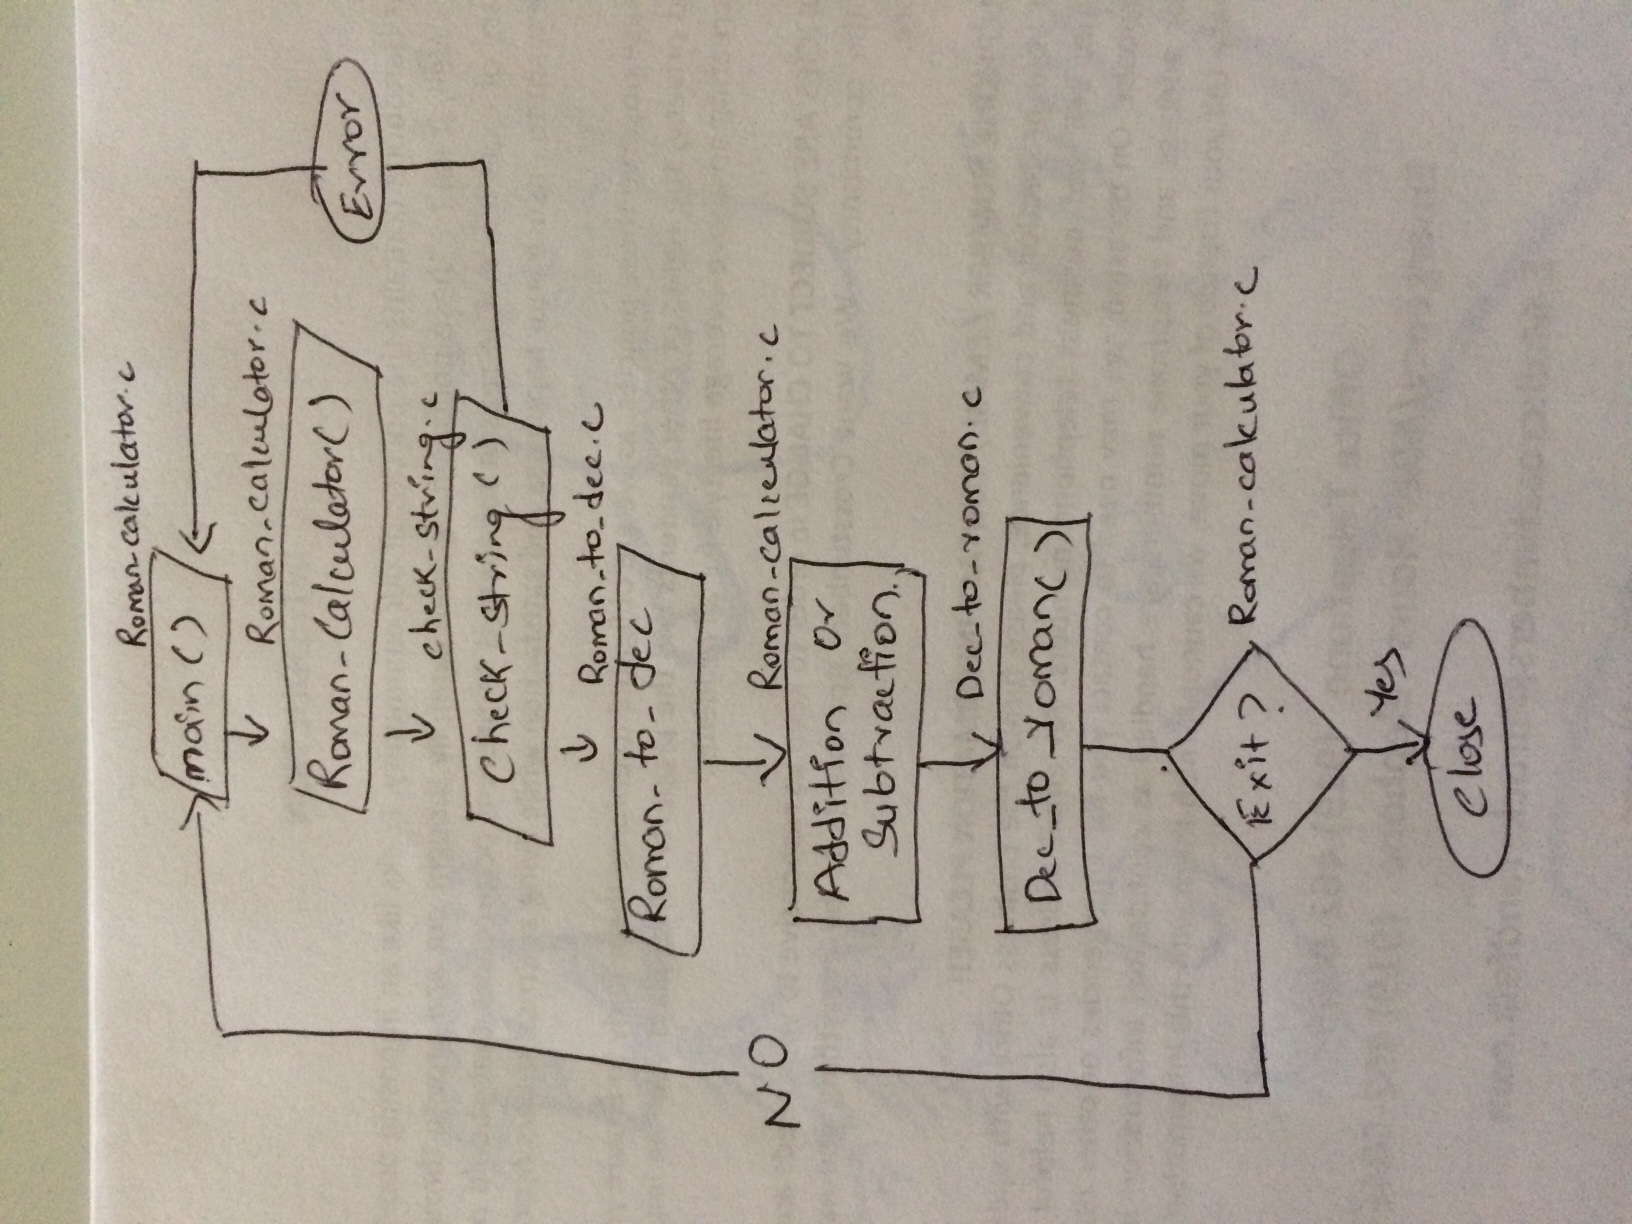 Roman-calculator.c
main()
Roman-calculator.c
Roman-Calculator()
Error
check-string.c
Check-string()
Roman_to_dec.c
Roman_to_dec
NO
Roman-calculator.c
Addition or
Subtraction.
Dec_to_roman.c
Dec_to_roman()
Exit?
Roman-calculator.c
Yes
Close